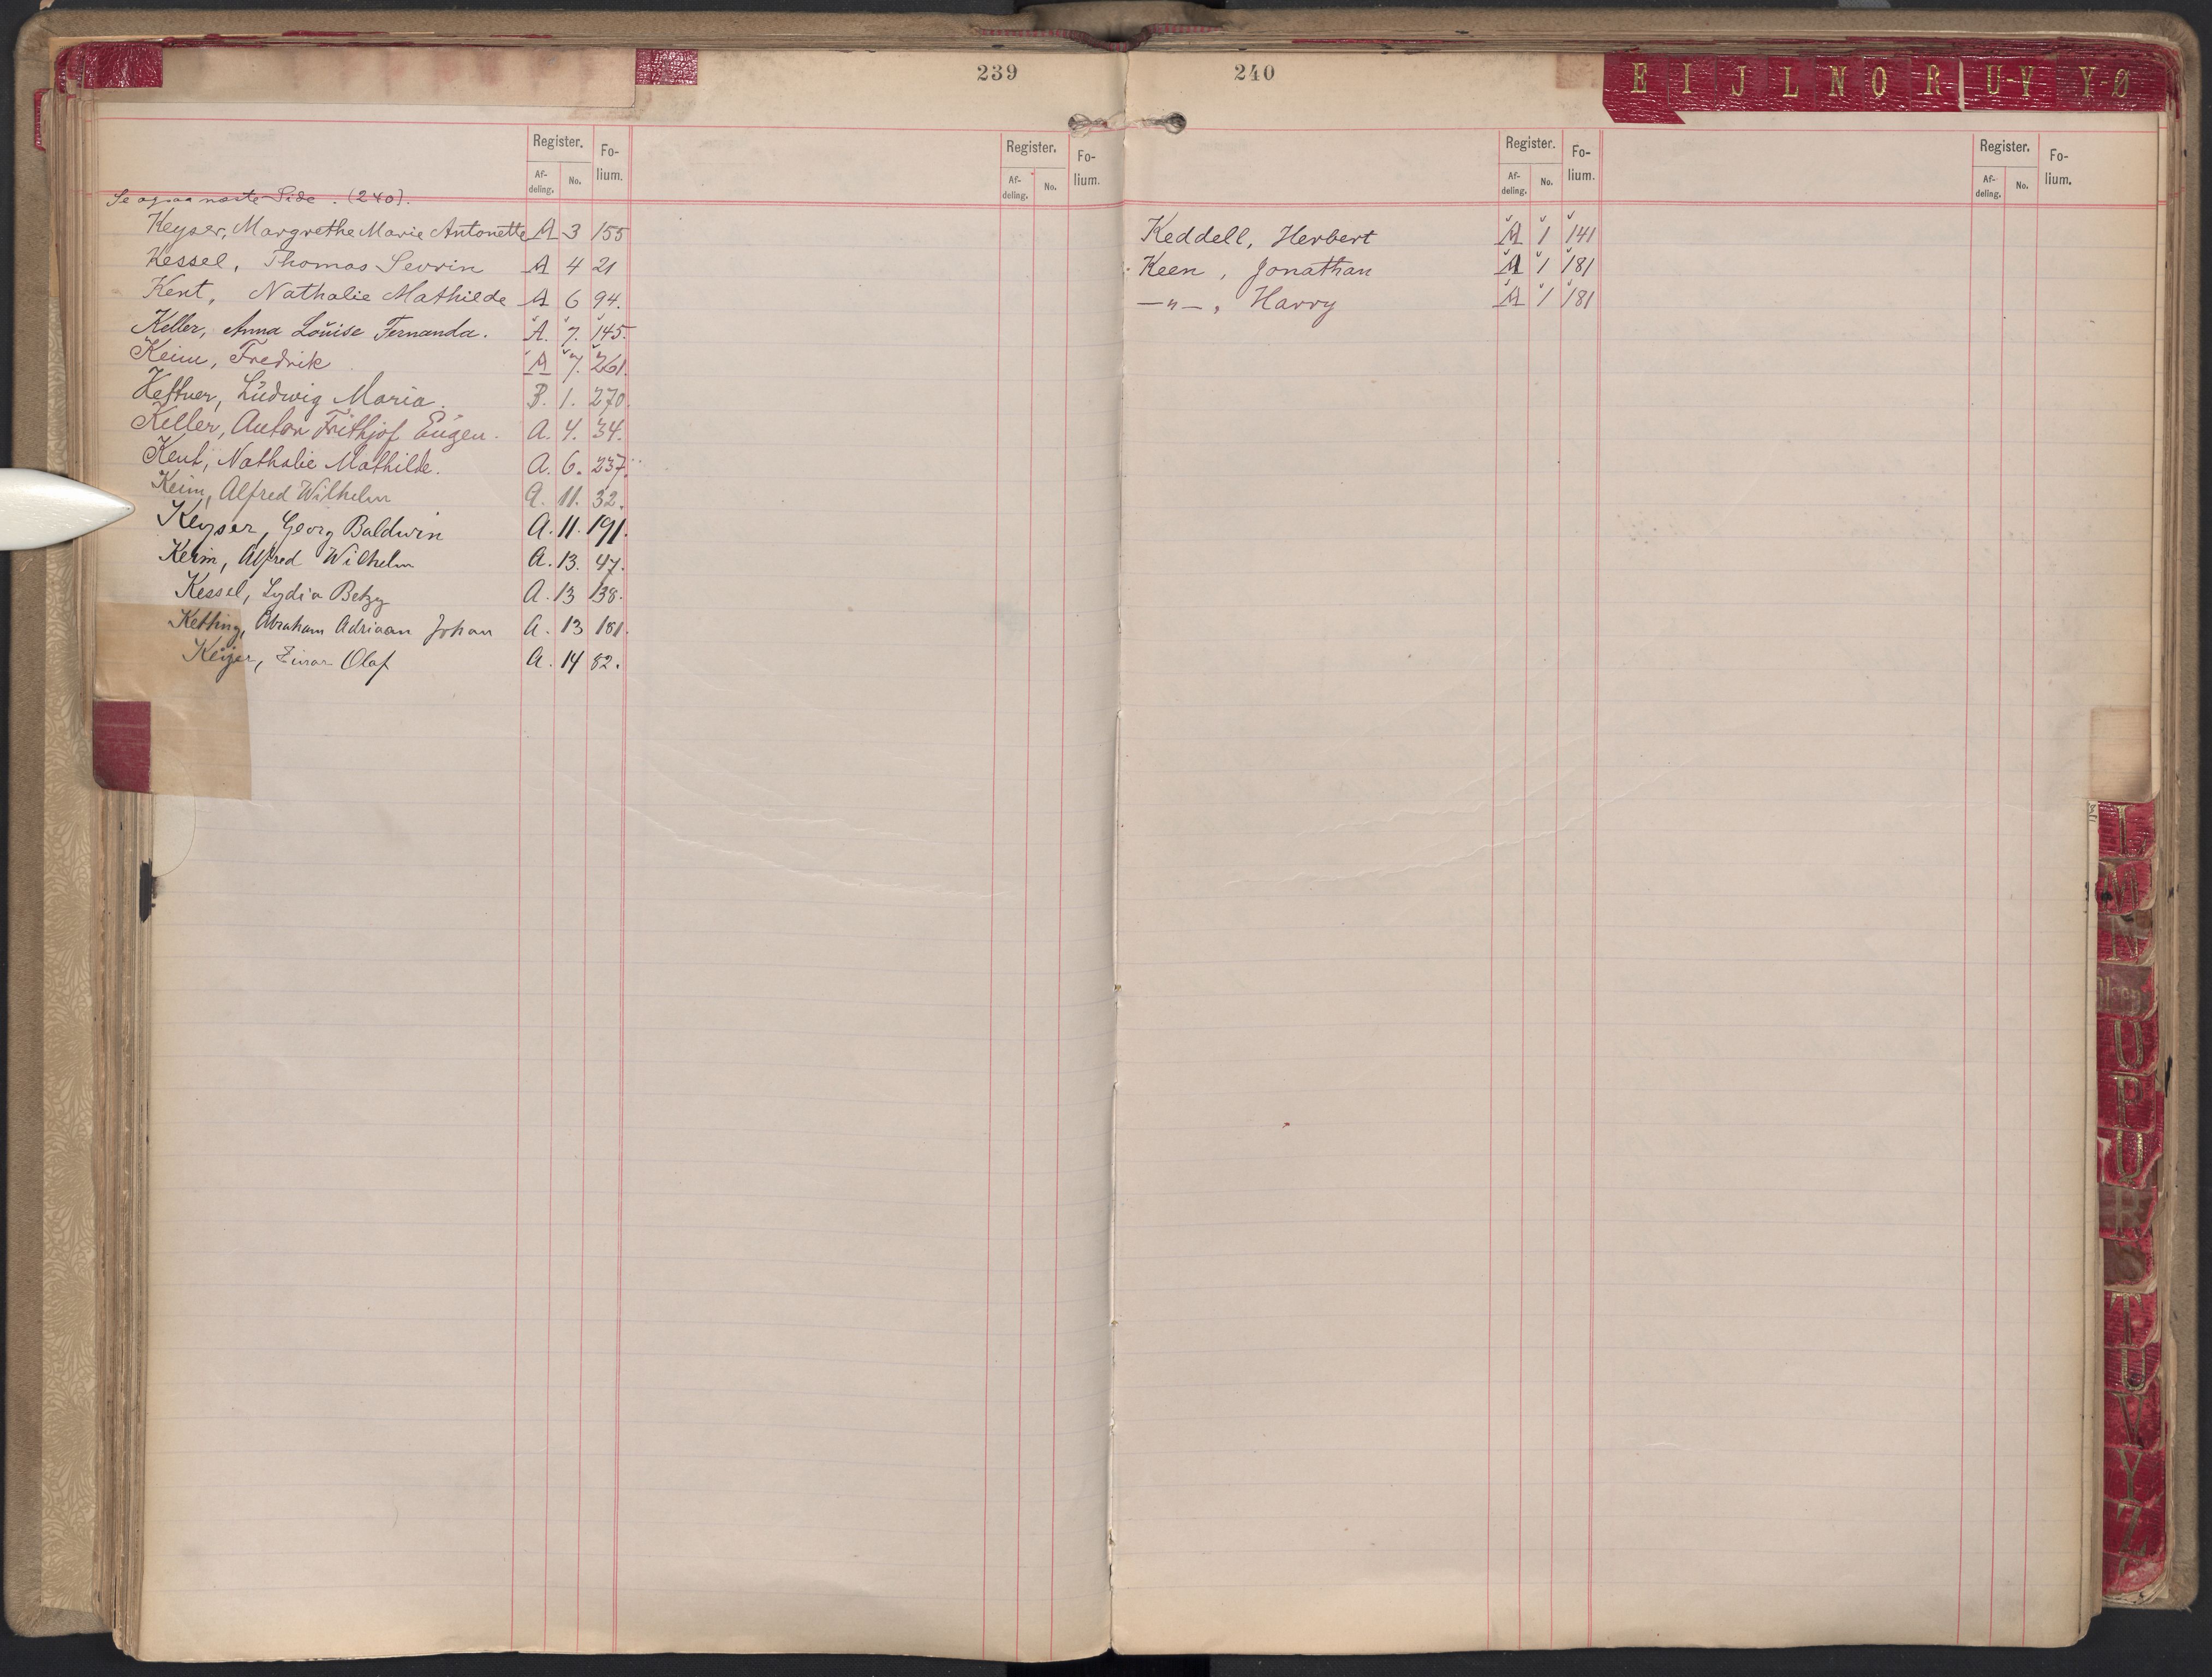 239
Register. Fo-
lium.
Af-
deling. No.
Register. Fo-
lium.
Af-
deling. No.
Se ogsaa næste Side. (240).
Keyser, Margrethe Marie Antonette A 3 155
Kessel, Thomas Sevrin A 4 21
Kent, Nathalie Mathilde A 6 94.
Keller, Anna Louise Fernanda. A. 7. 145.
Keim, Fredrik A 7. 261.
Ludwig Maria. B. 1. 270.
Keller, Anton Frithjof Eugen. A. 4. 34.
Kent, Nathalie Mathilde. A. 6. 237.
Keim, Alfred Wilhelm A. 11. 32.
Keyser, Georg Baldwin A. 11. 191.
Keim, Alfred Wilhelm A. 13. 47.
Kessel, Lydia Betzy A. 13 138.
Ketting, Abraham Adriaan Johan A. 13 181.
Keijer, Einar Olaf A. 14 82.
240
E I J L N O R U-V Y-Ø
Register. Fo-
lium.
Af-
deling. No.
Register. Fo-
lium.
Af-
deling. No.
Keddell, Herbert A 1 141
Keen, Jonathan A 1 181
—"—, Harry A 1 181
L
M
N
Olsen
O
P
U
R
T
U
V
Y
Z